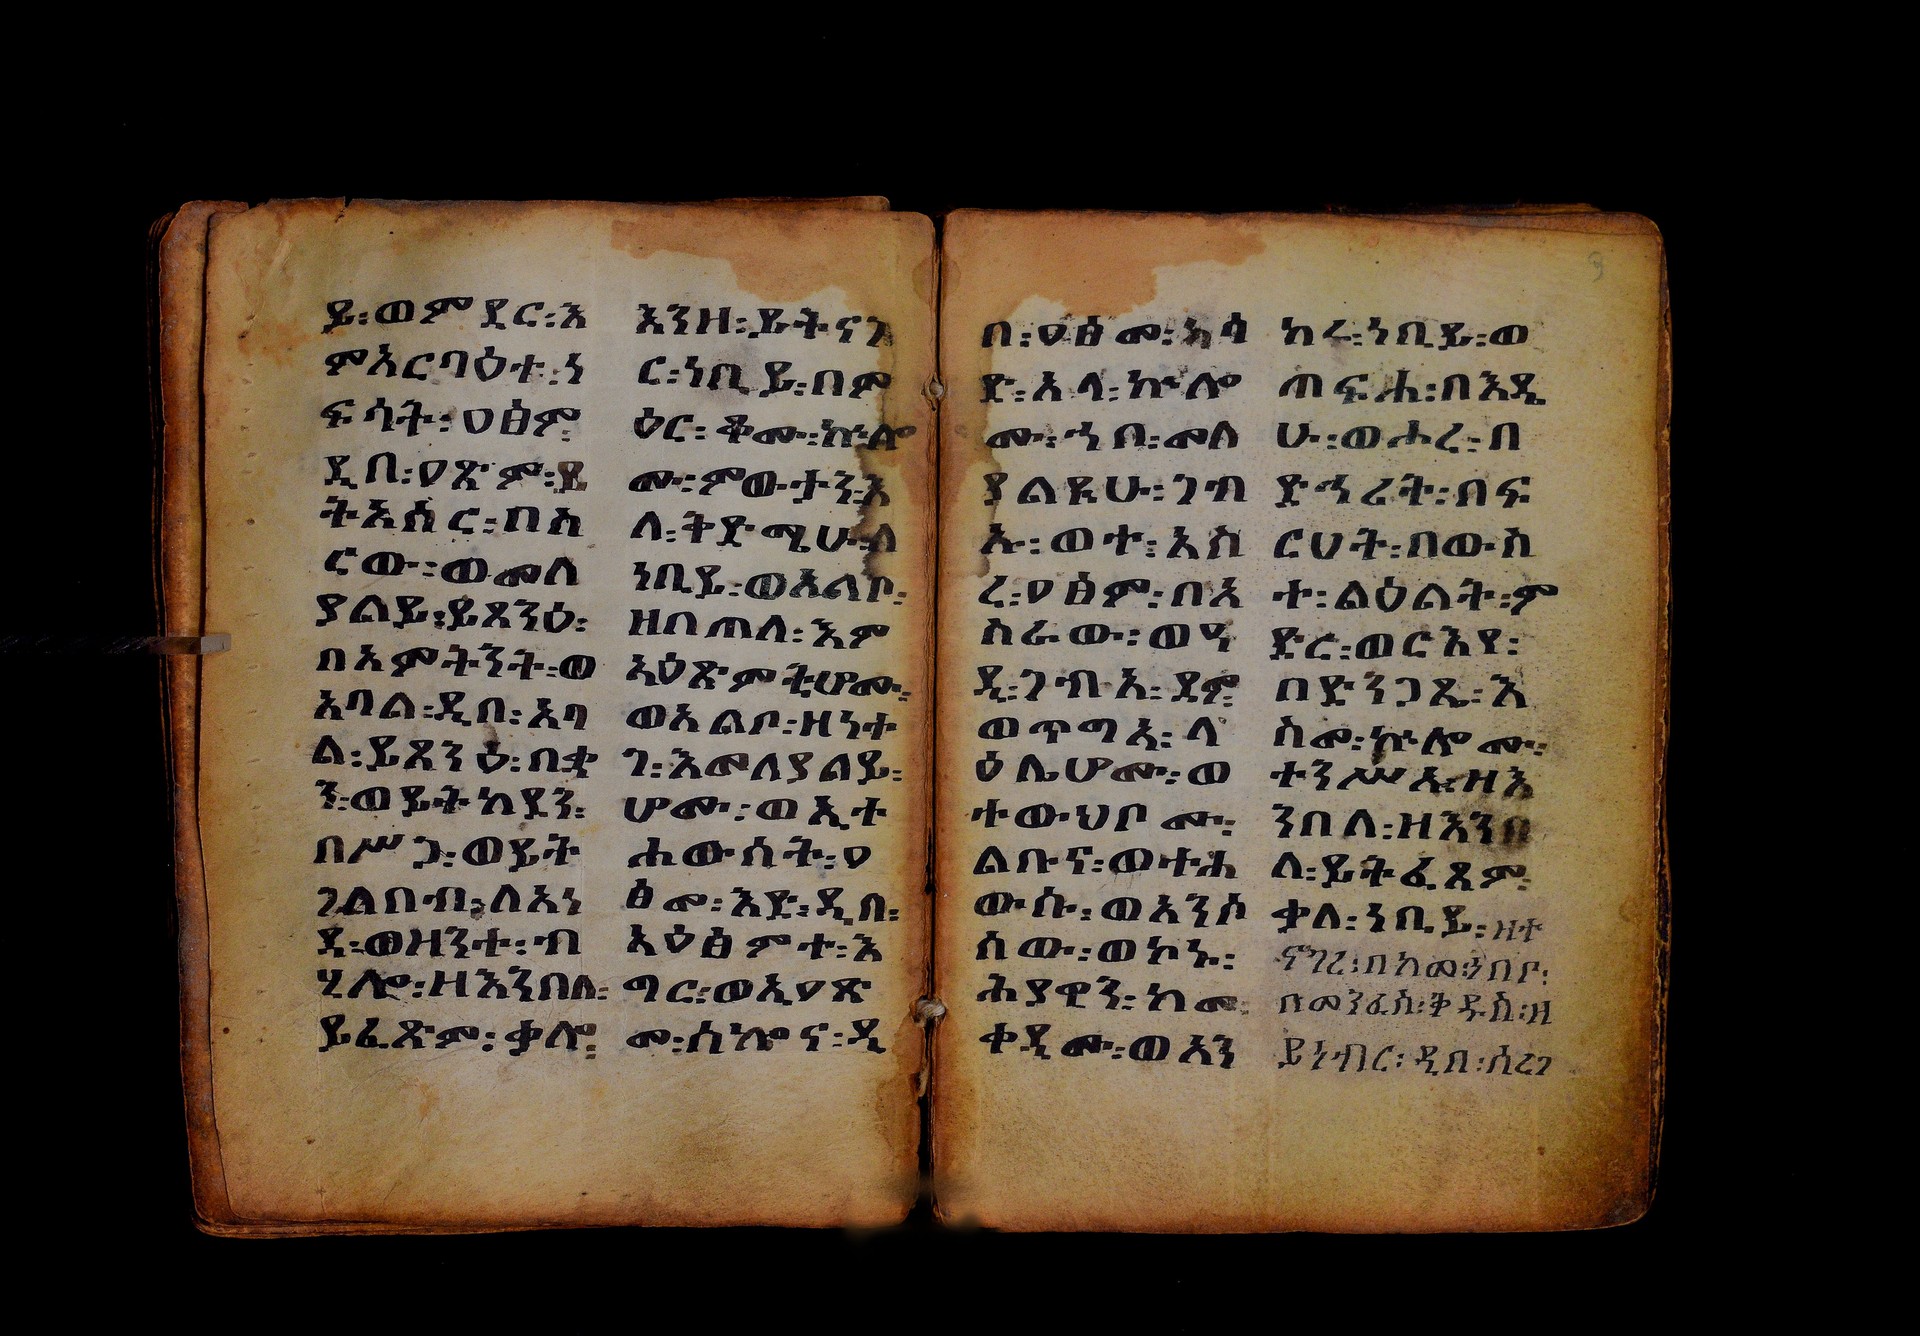 ይ፡ወምድር፡እ
ምአርባዕተ፡ነ
ፍሳት፡ዐፅም
ዲበ፡ዐጽም፡ይ
ትአሰር፡በስ
ርው፡ወመለ
ያልይ፡ይጸንዕ፡
በአምትንት፡ወ
አባል፡ዲበ፡አባ
ል፡ይጸንዕ፡በቂ
ን፡ወይትከደን፡
በሥጋ፡ወይት
ገልበብ፡ለአነ
ዳ፡ወዘንተ፡ብ
ሂሎ፡ዘእንበለ፡
ይፈጽም፡ቃሎ፡
እንዘ፡ይትናገ
ር፡ነቢይ፡በም
ዕር፡ቆሙ፡ኵሎ
ሙ፡ምውታን፡እ
ለ፡ትድሜሁ፡ለ
ነቢይ፡ወአልቦ፡
ዘበጠለ፡እም
አዕጽምቲሆሙ፡
ወአልቦ፡ዘነተ
ገ፡እመለያልይ፡
ሆሙ፡ወኢተ
ሐውሰት፡ዐ
ፅመ፡እድ፡ዲበ፡
አዕፅምተ፡እ
ግር፡ወኢዐጽ
መ፡ሰኰና፡ዲ
በ፡ዐፅመ፡ክሳ
ድ፡አላ፡ኵሎ
ሙ፡ኀበ፡መለ
ያልዪሁ፡ገብ
ኡ፡ወተ፡አስ
ረ፡ዐፅም፡በአ
ስራው፡ወሣ
ዲ፡ገብአ፡ደም፡
ወጥግአ፡ላ
ዕሌሆሙ፡ወ
ተውህቦሙ፡
ልቡና፡ወተሐ
ውሱ፡ወአንሶ
ሰው፡ወኮኑ፡
ሕያዋን፡ከመ፡
ቀዲሙ፡ወአን
ከረ፡ነቢይ፡ወ
ጠፍሐ፡በእዴ
ሁ፡ወሖረ፡በ
ድኅሬት፡በፍ
ርሀት፡በውስ
ተ፡ልዕልት፡ም
ድር፡ወርእየ፡
በድንጋጼ፡እ
ስመ፡ኵሎሙ፡
ተንሥኡ፡ዘእ
ንበለ፡ዘእንበ
ለ፡ይትፈጸም፡
ቃለ፡ነቢይ፡ዘተ
ናገረ፡በከመ፡ኀበቦ፡
ቡመንፈስ፡ቅዱስ፡ዘ
ይነብር፡ዲበ፡ሰረገ